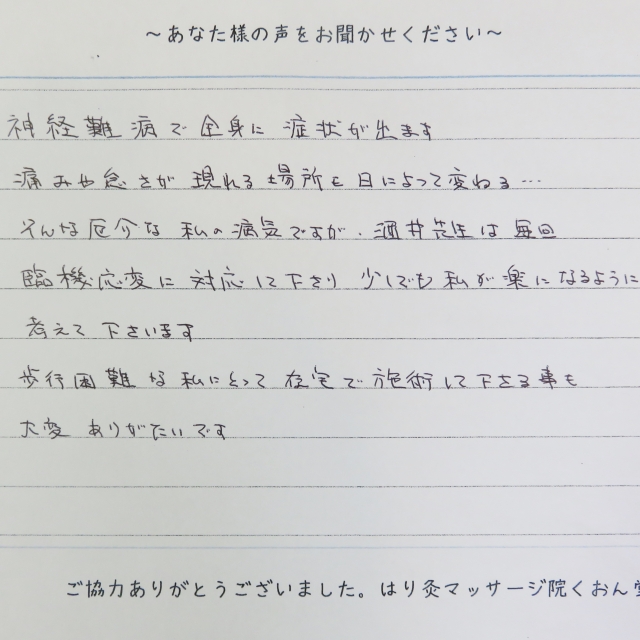 ～あなた様の声をお聞かせください～
神経難病で全身に症状が出ます
痛みや怠さが現れる場所も日によって変わる…
そんな厄介な私の病気ですが、酒井先生は毎回
臨機応変に対応して下さり 少しでも私が楽になるように
考えて下さいます
歩行困難な私にとって在宅で施術して下さる事も
大変ありがたいです
ご協力ありがとうございました。はり灸マッサージ院くおん堂